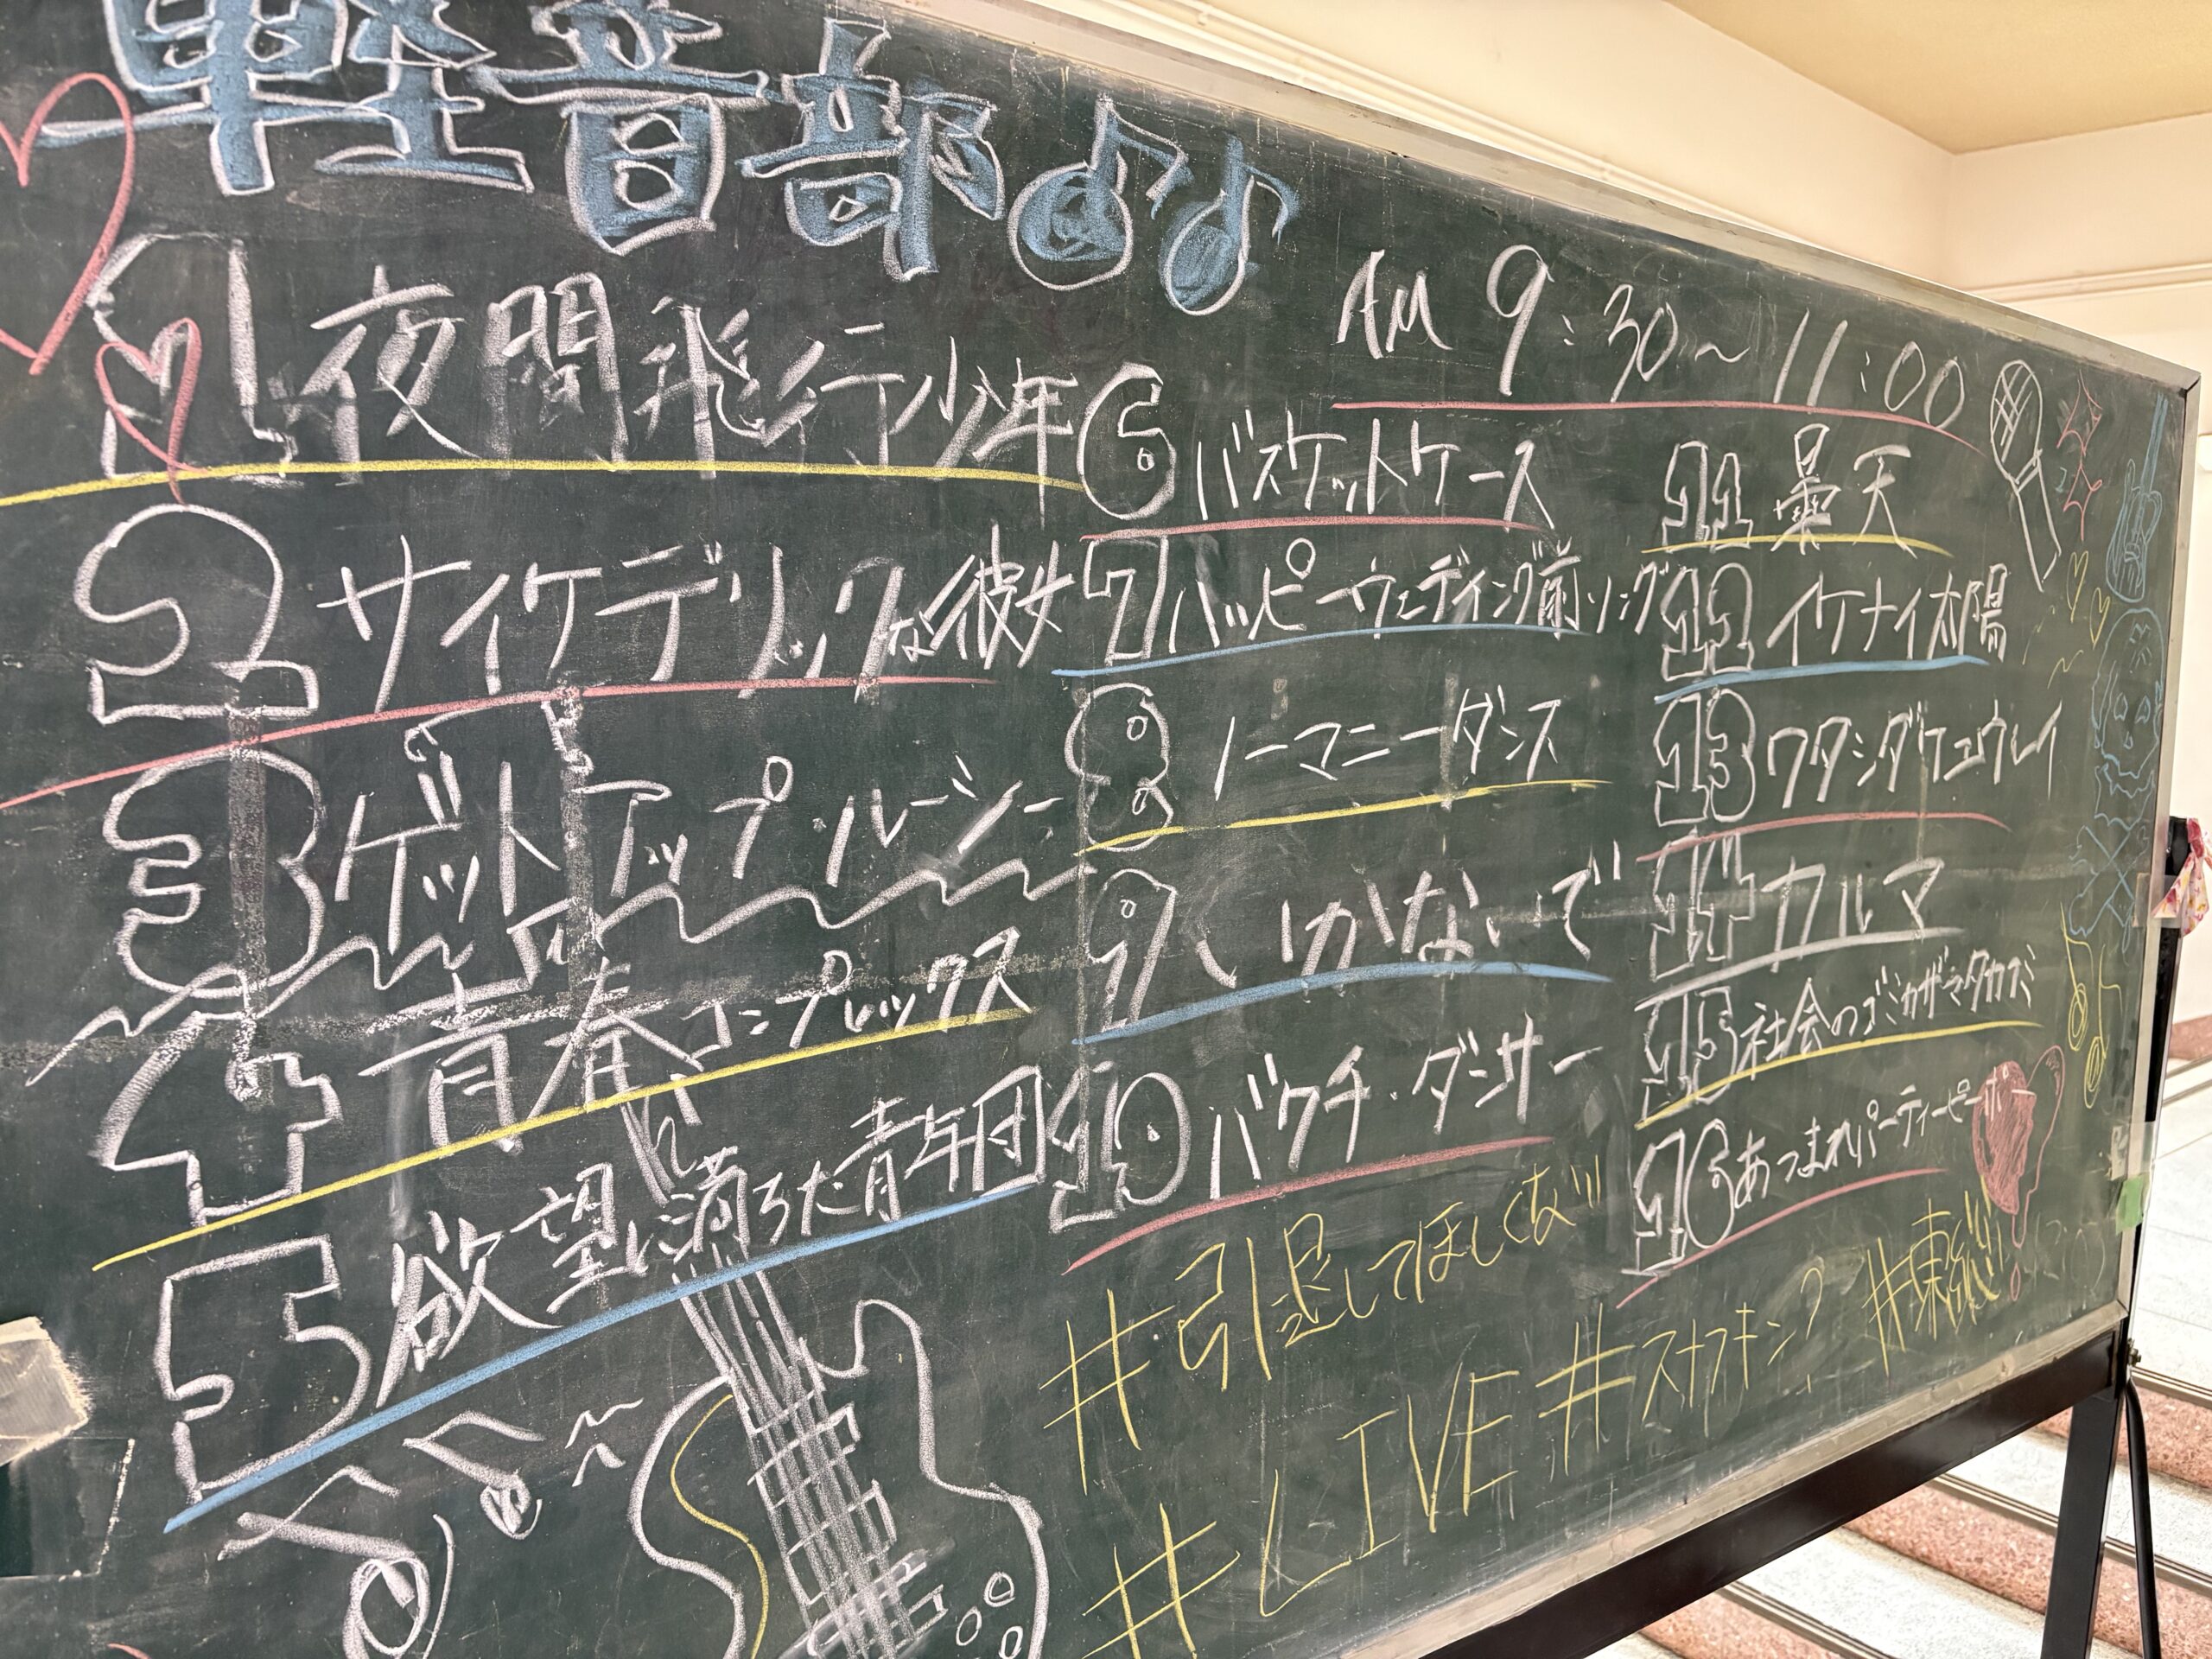 軽音部
AM 9:30~11:00
1 夜間飛行少年
2 サイケデリックな彼女
3 ゲットアップ・ルーシー
4 青春コンプレックス
5 欲望に満ちた青年団
6 バスケットケース
7 ハッピーウェディング前ソング
8 ノーマニーダンス
9 いかないで
10 バクチ・ダンサー
11 曇天
12 イケナイ太陽
13 ワタシダケユウレイ
14 カルマ
15 社会のゴミカザマタカズ
16 あつまれパーティーピーポー
#引退してほしくない
#LIVE #スナフキン? #東総